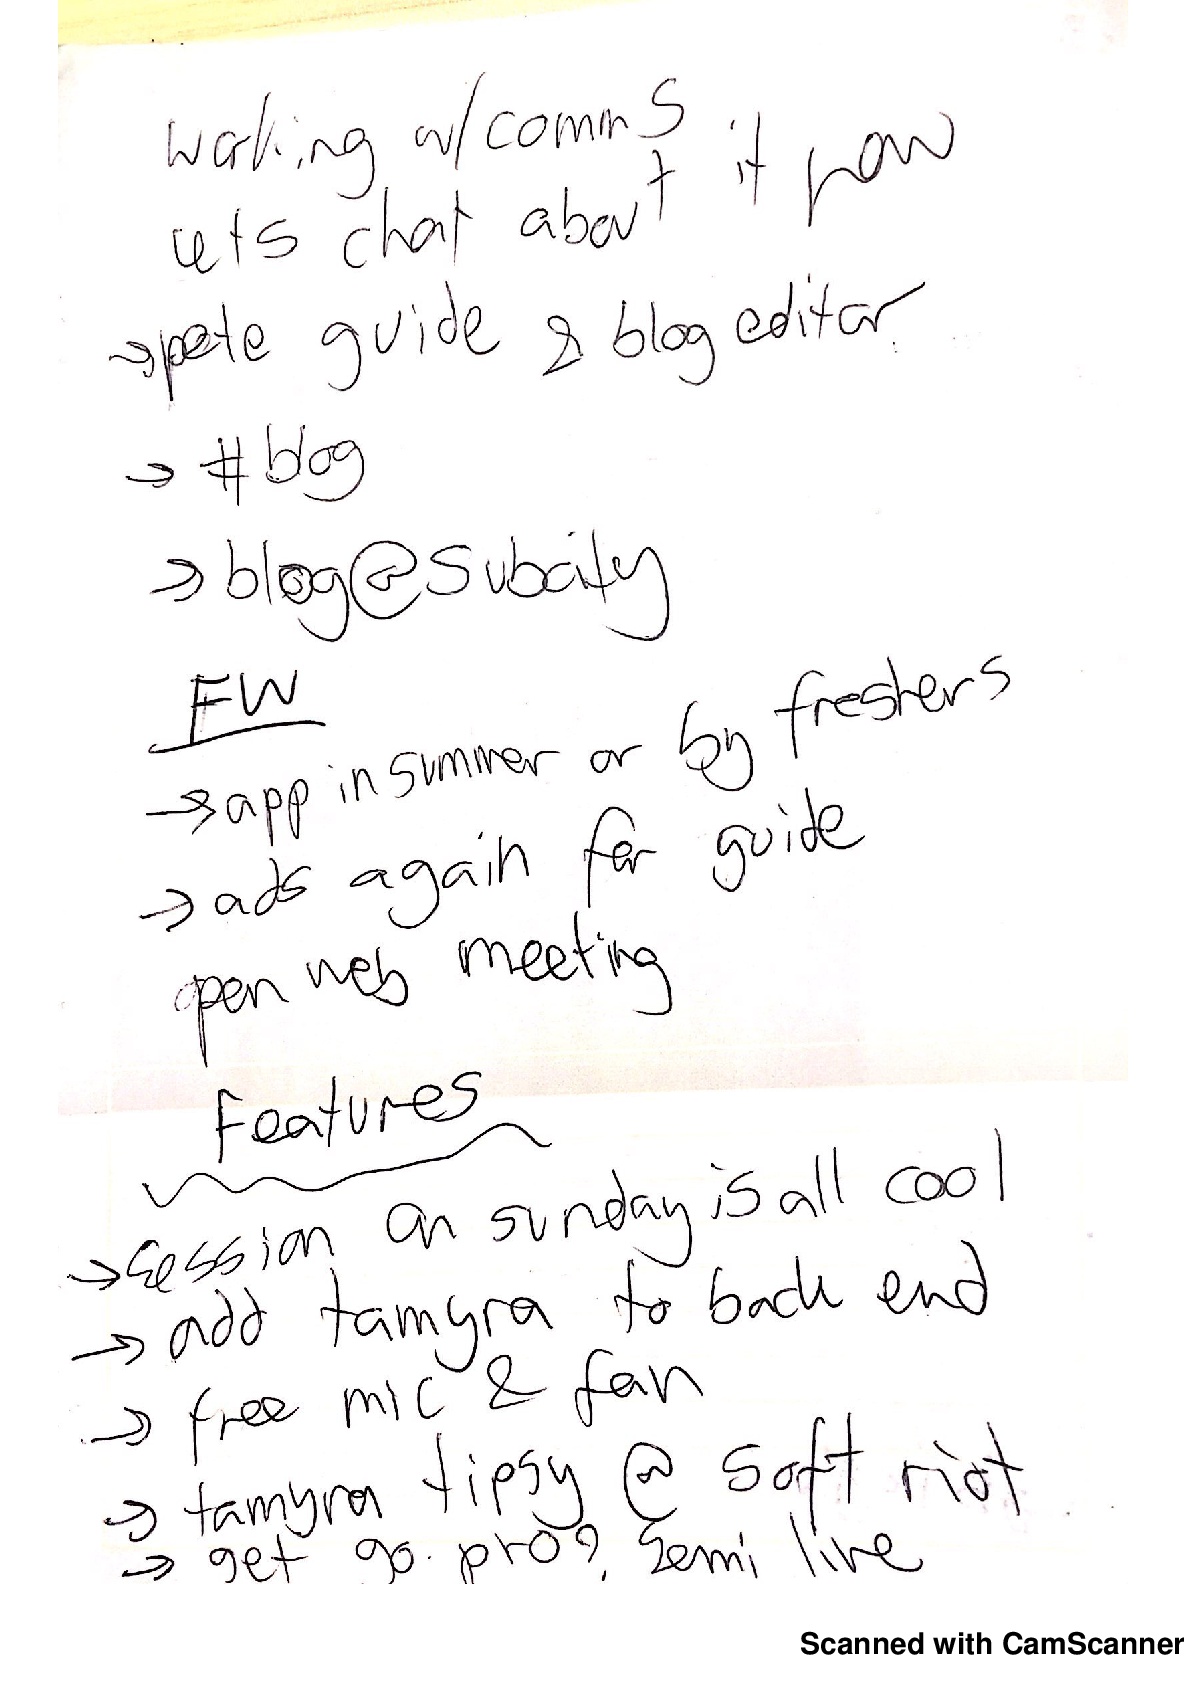 working w/comms
lets chat about it now
→pete guide & blog editor
→ #blog
→ blog@subcity
FW
→app in summer or by freshers
→ ads again for guide
open web meeting
Features
→session on sunday is all cool
→ add tamyra to back end
→ free mic & fan
→ tamyra tipsy @ soft riot
→ get go pro? semi live
Scanned with CamScanner